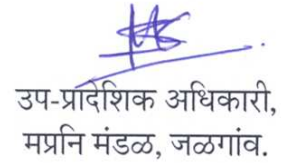 उप-प्रादेशिक अधिकारी,
मप्रनि मंडळ, जळगांव.